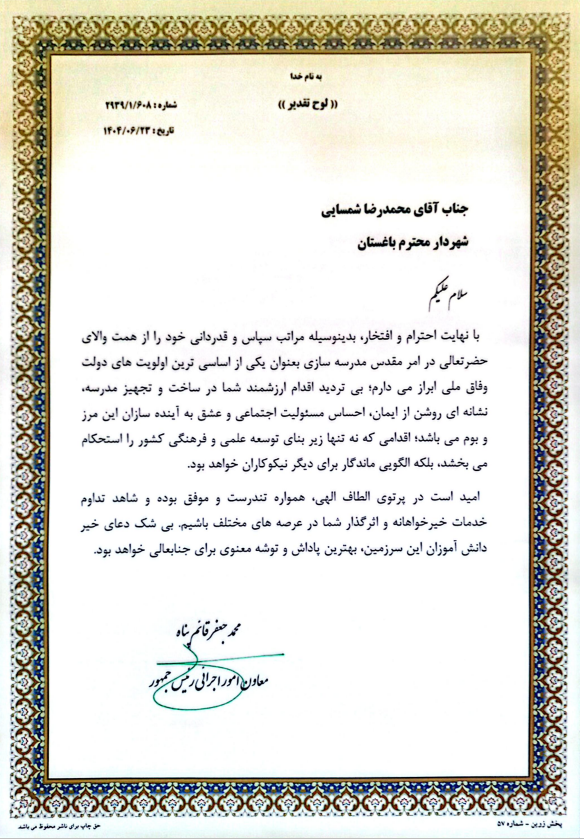 به نام خدا
(( لوح تقدیر ))
شماره : ۲۹۳۹/۱/۶۰۸
تاریخ : ۱۴۰۴/۰۶/۲۳
جناب آقای محمدرضا شمسایی
شهردار محترم باغستان
سلام علیکم
با نهایت احترام و افتخار، بدینوسیله مراتب سپاس و قدردانی خود را از همت والای
حضرتعالی در امر مقدس مدرسه سازی بعنوان یکی از اساسی ترین اولویت های دولت
وفاق ملی ابراز می دارم؛ بی تردید اقدام ارزشمند شما در ساخت و تجهیز مدرسه،
نشانه ای روشن از ایمان، احساس مسئولیت اجتماعی و عشق به آینده سازان این مرز
و بوم می باشد؛ اقدامی که نه تنها زیر بنای توسعه علمی و فرهنگی کشور را استحکام
می بخشد، بلکه الگویی ماندگار برای دیگر نیکوکاران خواهد بود.
امید است در پرتوی الطاف الهی، همواره تندرست و موفق بوده و شاهد تداوم
خدمات خیرخواهانه و اثرگذار شما در عرصه های مختلف باشیم. بی شک دعای خیر
دانش آموزان این سرزمین، بهترین پاداش و توشه معنوی برای جنابعالی خواهد بود.
محمد جعفر قائم پناه
معاون امور اجرائی رئیس جمهور
پخش زرین - شماره ۵۷
حق چاپ برای ناشر محفوظ می باشد